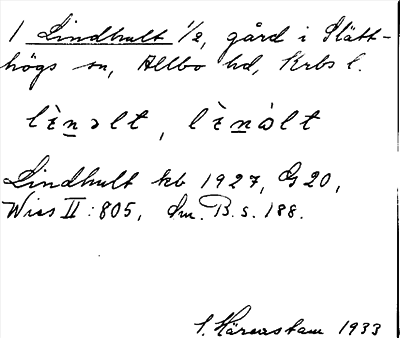 1 Lindhult 1/2, gård i Slätt-
högs sn, Allbo hd, Krbs l.
lìnəlt, lìnòlt
Lindhult kb 1927, G 20,
Wies II:805, Sm. B. s. 188.
S. Härenstam 1933